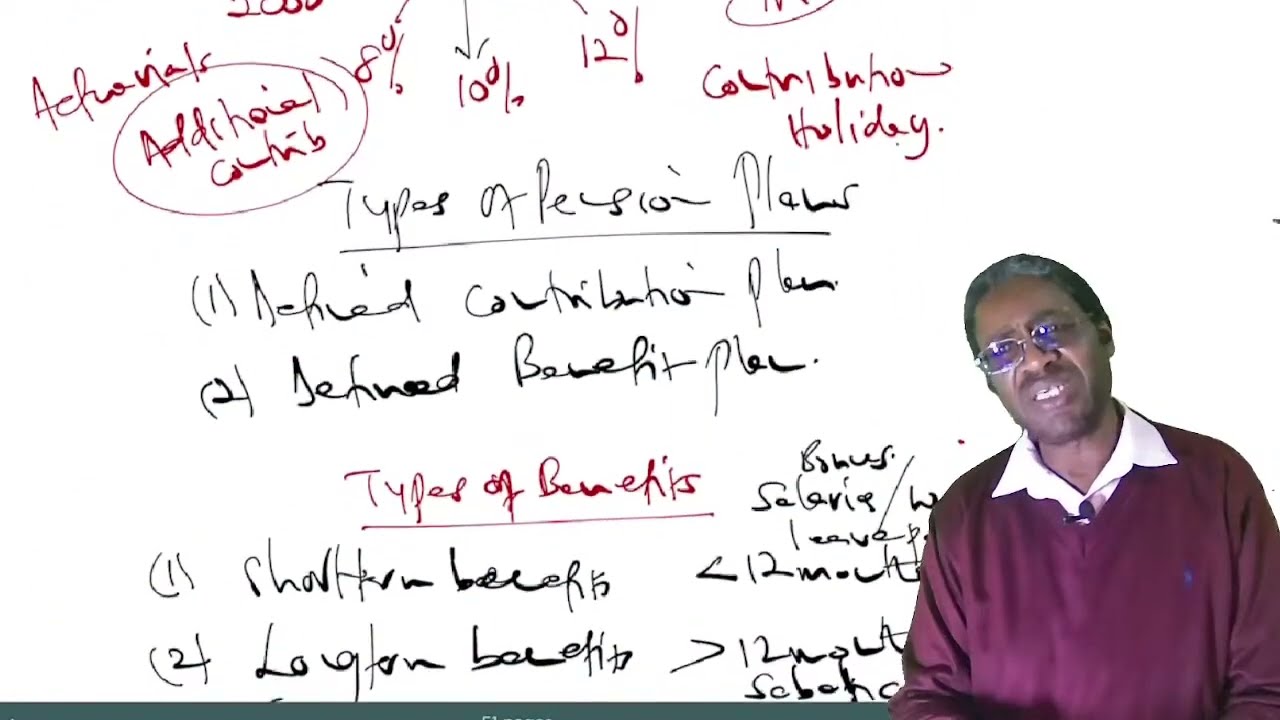 Actuarials
8%
10%
12%
Additional
contrib
Contribution
Holiday.
Types of Pension Plans
(1) Defined contribution plan.
(2) Defined Benefit plan.
Types of Benefits
Bonus.
Salaries/
leave
(1) Short term benefits < 12 months
(2) Long term benefits > 12 months
51 pages